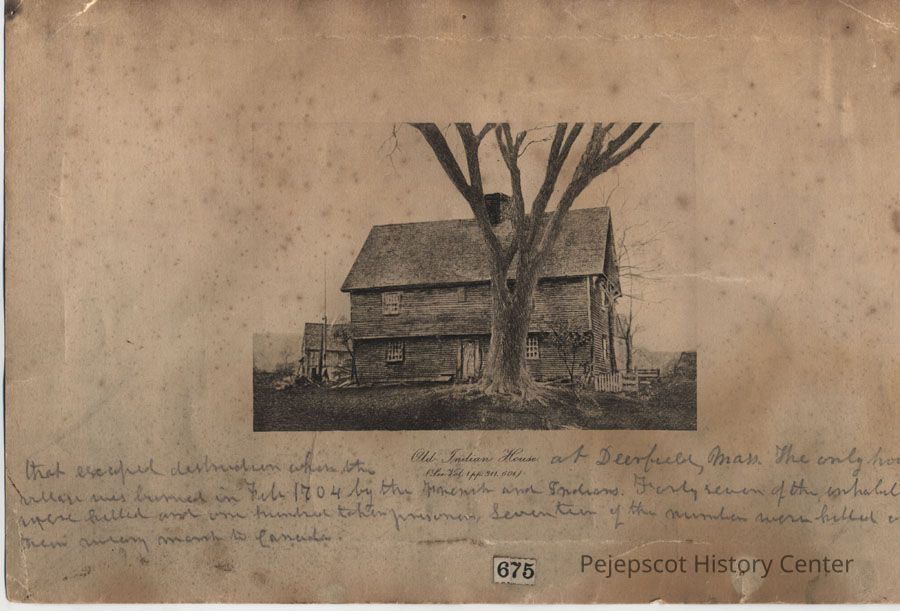 Old Indian House at Deerfield, Mass. The only hou
that escaped destruction when the
village was burned in Feb 1704 by the French and Indians. Forty seven of the inhabit
were killed and one hundred taken prisoners. Seventeen of the number were killed
march to Canada.
675
Pejepscot History Center